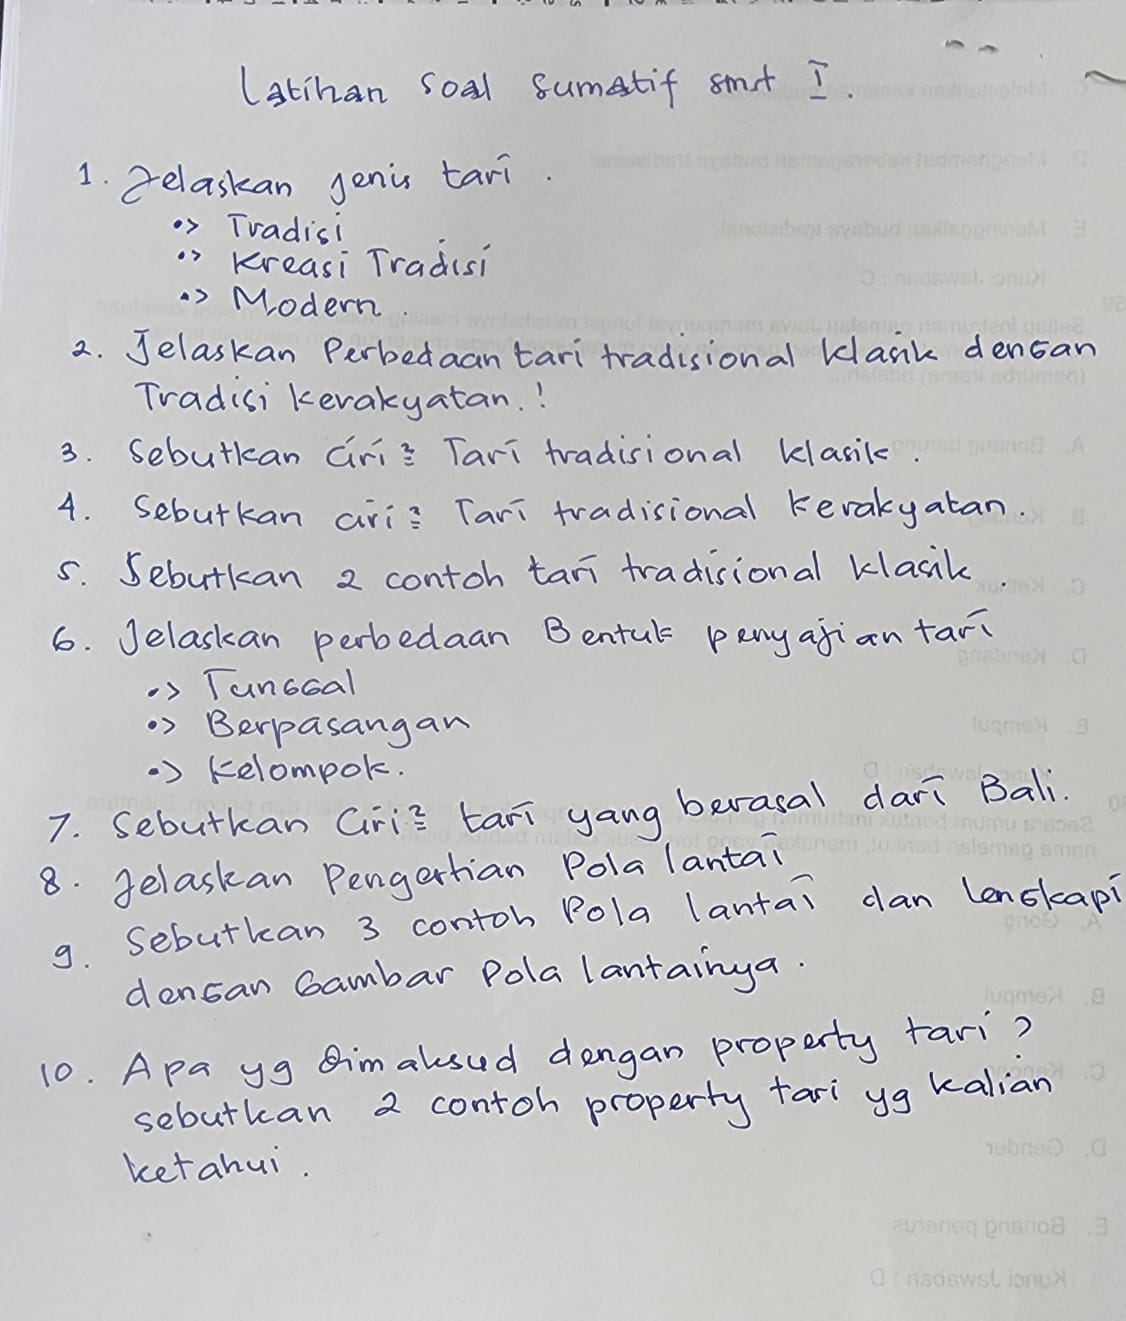 Latihan Soal Sumatif smt I.
1. Jelaskan jenis tari.
•> Tradisi
•> Kreasi Tradisi
•> Modern.
2. Jelaskan Perbedaan tari tradisional klasik dengan
Tradisi kerakyatan.!
3. Sebutkan Ciri² Tari tradisional klasik.
4. Sebutkan ciri² Tari tradisional kerakyatan.
5. Sebutkan 2 contoh tari tradisional klasik.
6. Jelaskan perbedaan Bentuk penyajian tari
•> Tunggal
•> Berpasangan
•> Kelompok.
7. Sebutkan Ciri² tari yang berasal dari Bali.
8. Jelaskan Pengertian Pola lantai
9. Sebutkan 3 contoh Pola lantai dan lengkapi
dengan Gambar Pola lantainya.
10. Apa yg dimaksud dengan property tari?
sebutkan 2 contoh property tari yg kalian
ketahui.